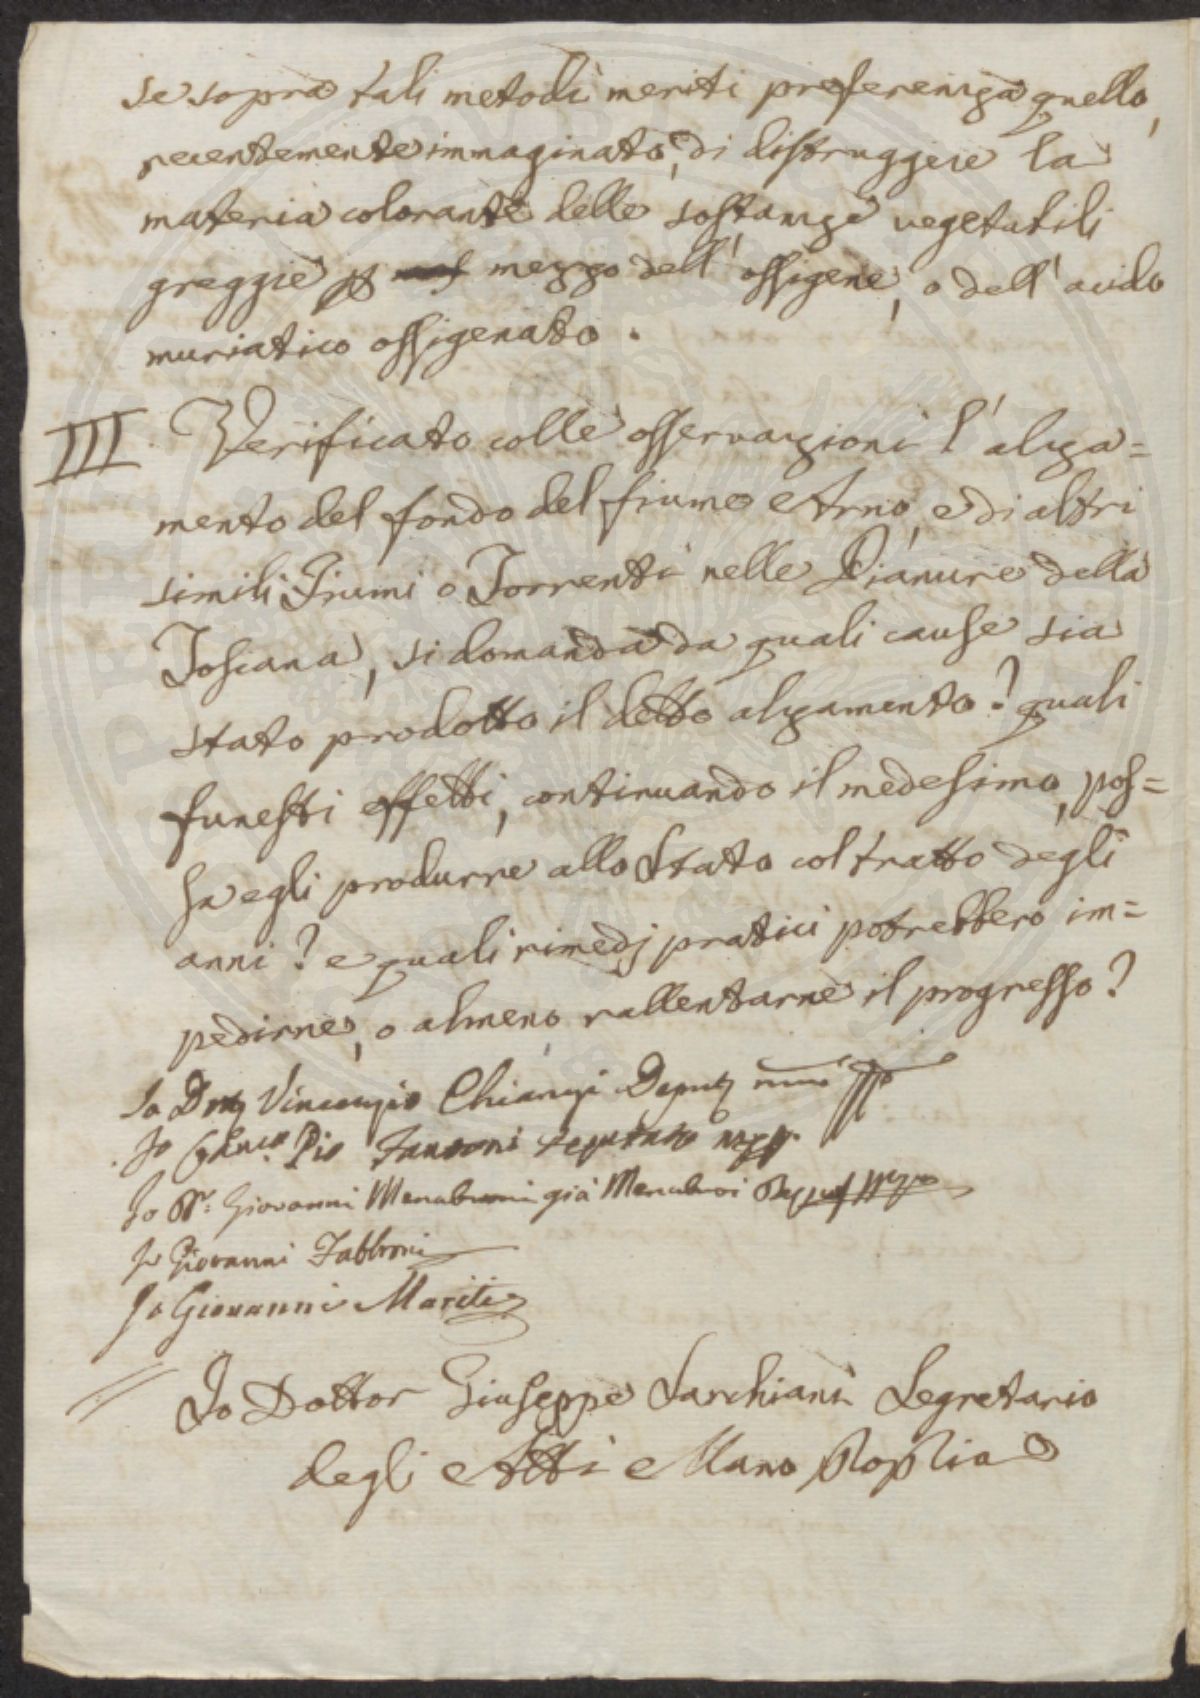 se sopra tali metodi meriti preferenza quello,
recentemente immaginato, di distruggere la
materia colorante delle sostanze vegetabili
greggie p mezzo dell'ossigene, o dell'acido
muriatico ossigenato.
III Verificato colle osservazioni l'alza=
mento del fondo del fiume Arno, e di altri
simili Fiumi o Torrenti nelle Pianure della
Toscana, si domanda da quali cause sia
stato prodotto il detto alzamento? quali
funesti effetti, continuando il medesimo, pos=
sa egli produrre allo Stato col tratto degli
anni? e quali rimedj pratici potrebbero im=
pedirne, o almeno rallentarne il progresso?
Io Vincenzio Chiarugi
Io Pio Fantoni deputato
Io Dr. Giovanni Menabuoni già Menabuoi
Io Giovanni Fabbroni
Io Giovanni Mariti
Io Dottor Giuseppe Sarchiani Segretario
degli Atti Mano Propria